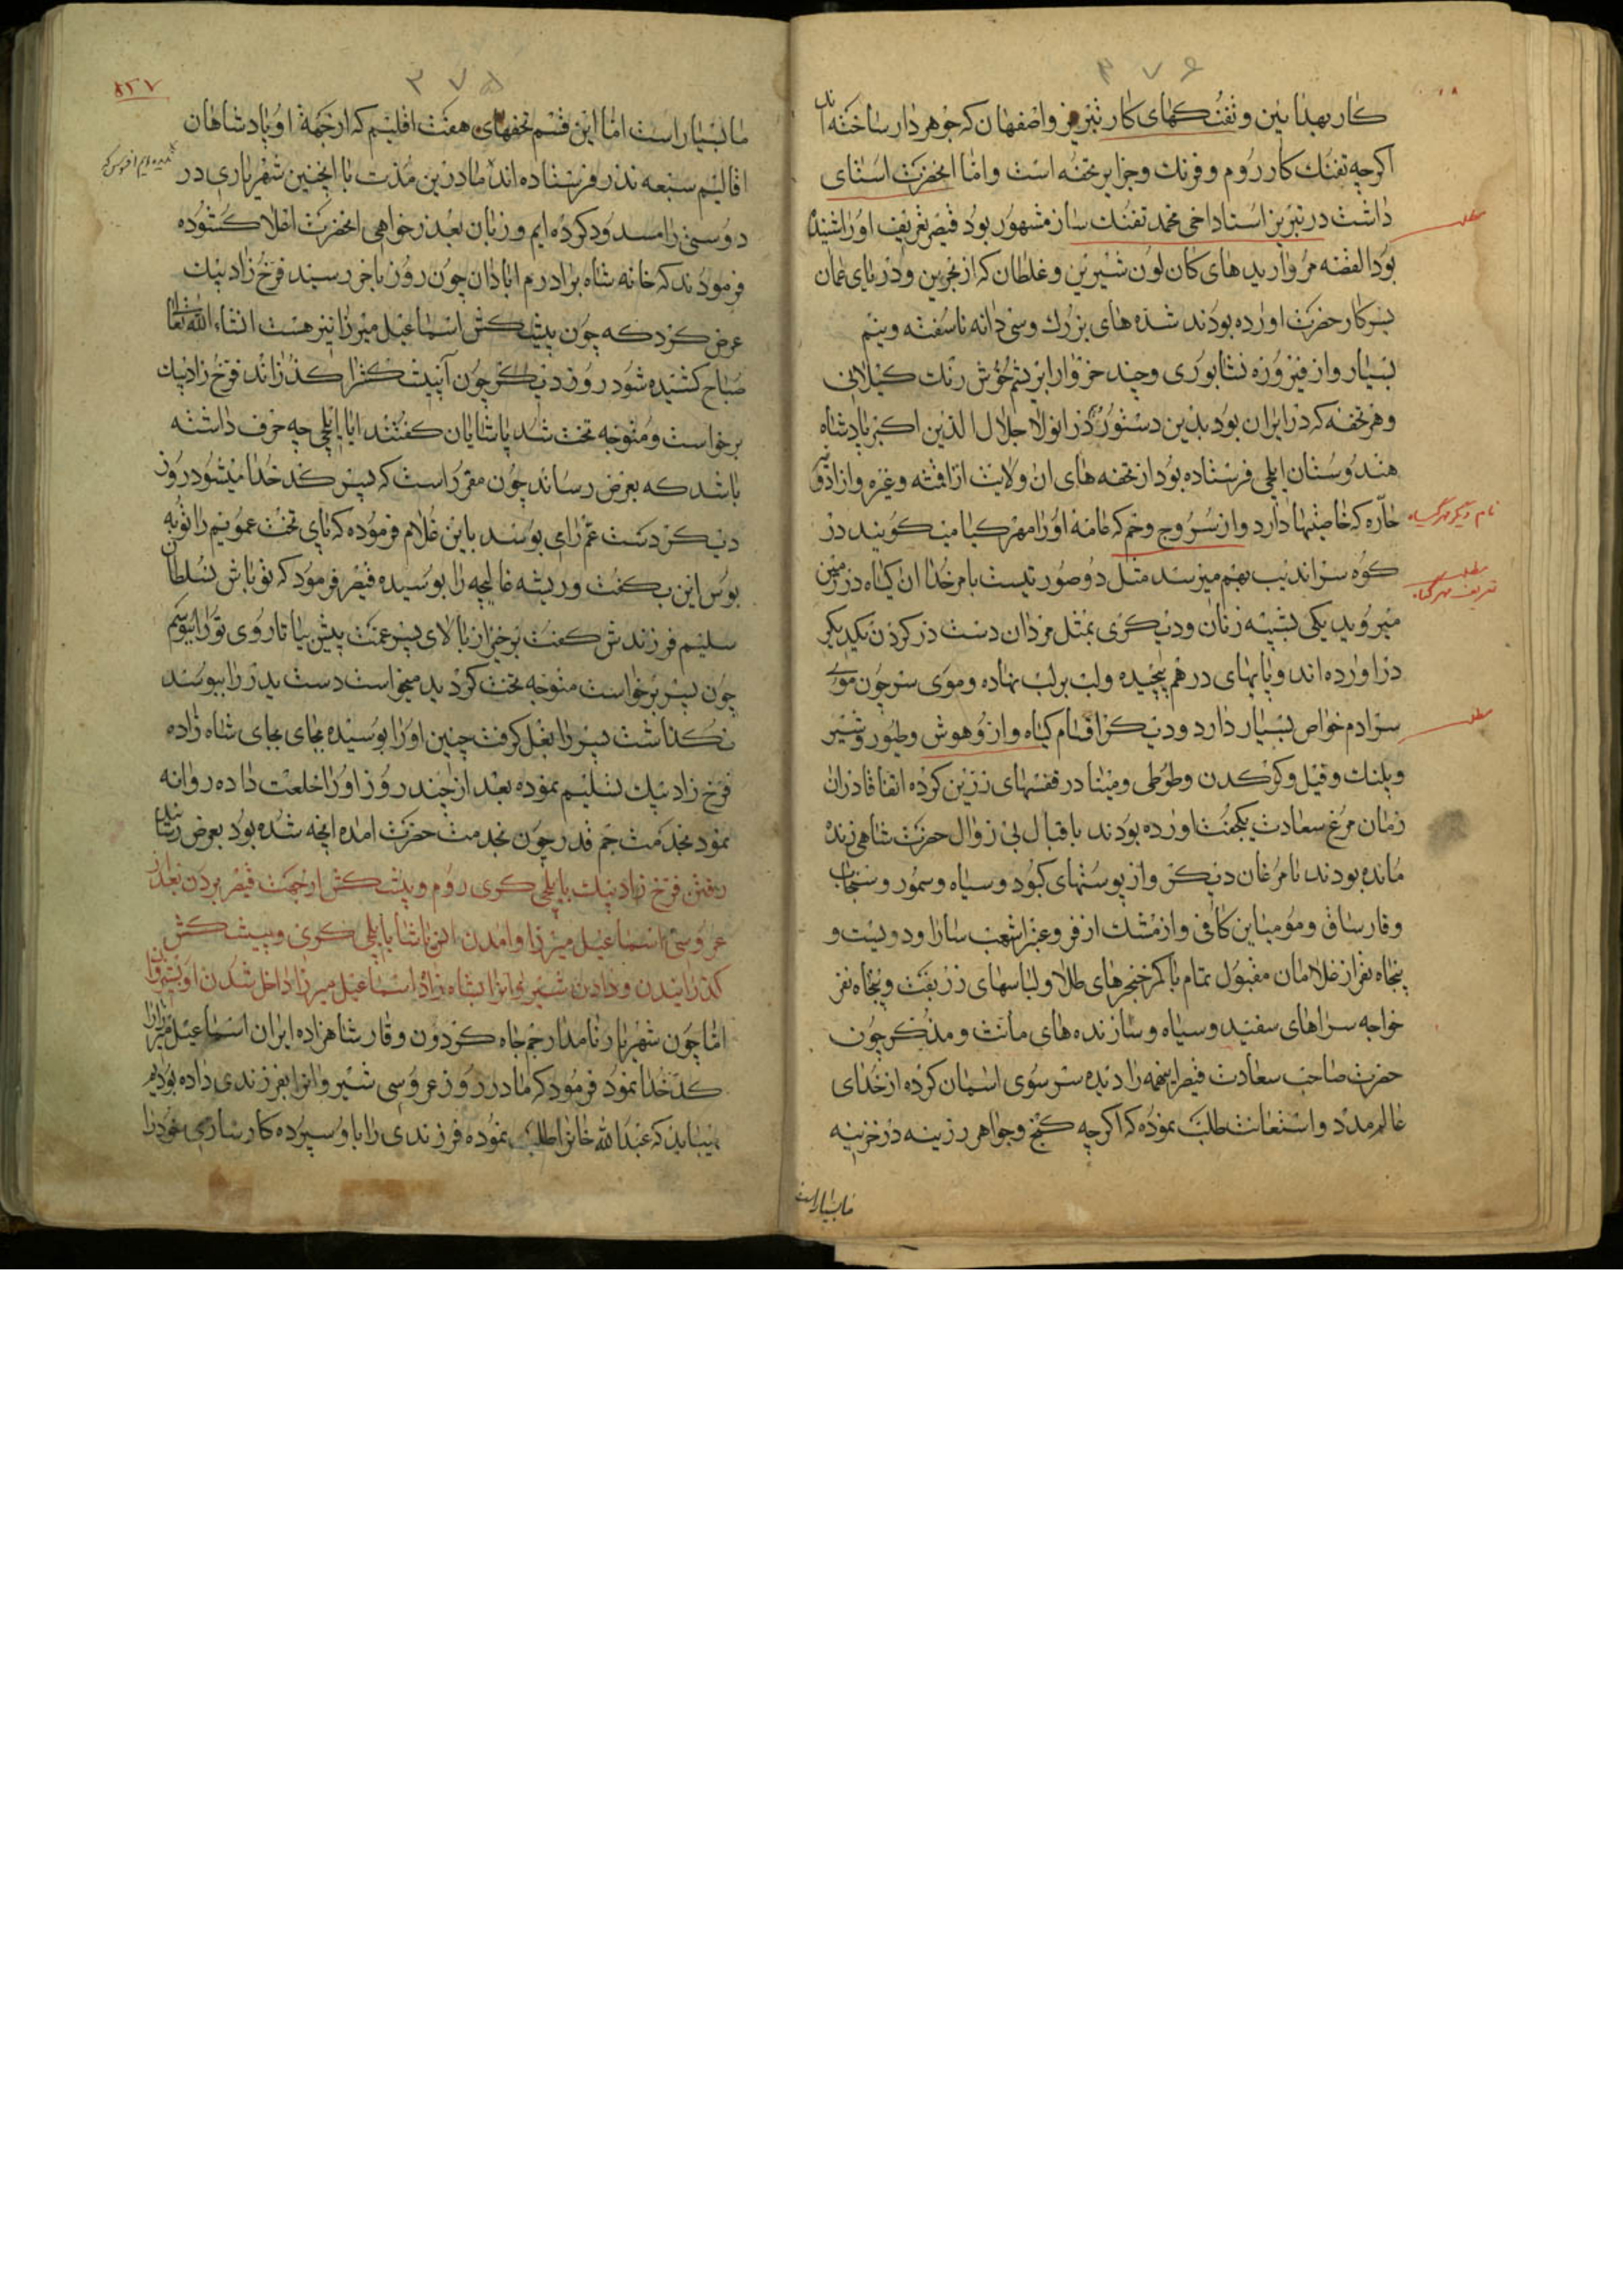 ۳۷۶
کار بهدایین و تفنگهای کار تبریز و اصفهان که جوهردار ساخته اند
اکرچه تفنک کار روم و فرنک و جزایر تحفه است و امّا انحضرت استای
داشت در تبریز استاد اخی محمد تفنک ساز مشهور بود قیصر تعریف اورا شنیده
بود القصّه مرواریدهای کان لون شیرین و غلطان که از بحرین و دریای عمان
بسرکار حضرت اورده بودند شده های بزرك وسی دانه ناسفته ونیم
بسیار و از فیروزه نشابوری و چند خروار ابریشم خوش رنك کیلانی
و هر تحفه که در ایران بود بدین دستور در انولا جلال الدین اکبر پادشاه
هندوستان ایلچی فرستاده بود از تحفه های ان ولایت از اقمشه وغیره و از ادویه
حارّه که خاصیّتها دارد و از سروج وخم که عامه اورا مهرکیا میکویند در
نام دیکر مهرکیاه
کوه سراندیب بهم میرسد مثل دو صورتیست بامر خدا ان کیاه در زمین
مطلب
تعریف مهرکیاه
میروید یکی بشبیه زنان ودیکری بمثل مردان دست در کردن یکدیکر
دراورده اند و پایهای درهم پیچیده ولب برلب نهاده و موی سر چون موی
سرادم خواص بسیار دارد ودیکر اقسام کیاه و از وهوش و طیور و شیر
مطلب
و پلنك و فیل و کرکدن و طوطی و مینا در قفسهای زرین کرده اتفاقا دران
زمان مرغ سعادت یکجفت اورده بودند باقبال بی زوال حضرت شاهی زنده
مانده بودند با مرغان دیکر و از پوستهای کبود وسیاه وسمور وسنجاب
وقارساق و مومیاین کافی و از مشك ازفر و عنبر اشعب سارا و دویست و
پنجاه نفر از غلامان مقبول تمام با کمر خنجرهای طلا و لباسهای زربفت و پنجاه نفر
خواجه سراهای سفید و سیاه و سازنده های مانث و مذکر چون
حضرت صاحب سعادت قیصر اینهمه را دیده سر سوی اسمان کرده از خدای
عالم مدد و استعانت طلب نموده که اکرچه کنج و جواهر و زینه در خزینه
ما بسیار است
۳۷۵
۸۲۷
ما بسیار است امّا این قسم تحفهای هفت اقلیم که از جمة او پادشاهان
اقالیم سبعه نذر فرستاده اند ما درین مدّت با اینچنین شهریاری در
دوستی را مسدود کرده ایم و زبان بعذر خواهی انحضرت اخلا کشوده
فرمودند که خانه شاه برادرم ابادان چون روز باخر رسید فرّخ زاد بیك
عرض کرد که چون پیشکش اسماعیل میرزا نیز هست انشاء الله تعالی
صباح کشیده شود روز دیکر چون آنپیشکشرا کذراند فرّخ زاد بیك
برخواست و متوجه تخت شد پاشایان کفتند ایا ایلچی چه حرف داشته
باشد که بعرض رساند چون مقرّر است که پسر کدخدا میشود روز
دیکر دست عمّ رامی بوسند باین غلام فرموده که پای تخت عمویم را تو به
بوس این بکفت و ریشه غالیچه را بوسیده قیصر فرمود که تو باش بسلطان
سلیم فرزندش کفت برخیز از بالای پسر عمت پیش بیا تا روی تورا ببوسم
چون پسر برخواست متوجه تخت کردید میخواست دست پدر را ببوسد
نکذاشت پسر را بغل کرفت جبین اورا بوسیده بجای بجای شاه زاده
فرّخ زاد بیك تسلیم نموده بعد از چند روز اورا خلعت داده روانه
نمود بخدمت جم قدر چون بخدمت حضرت امده انچه شده بود بعرض رسانید
رفتن فرّخ زاد بیك بایلچی کری روم و پیشکش از جهت قیصر بردن بعد از
عروسی اسماعیل میرزا و امدن پاشا بایلچی کری و پیشکش
کذرانیدن و دادن شیروانرا بشاه زاده اسماعیل میرزا داخل شدن او بشیروان
امّا چون شهریار نامدار جم جاه کردون وقار شاهزاده ایران اسماعیل میرزا را
کدخدا نمود فرمود که ما در روز عروسی شیروانرا بفرزندی داده بودیم
میباید که عبدالله خانرا طلب نموده فرزندی را باو سپرده کارسازی خود را